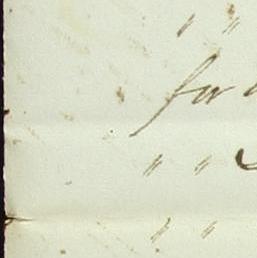 " "
for
" "
" "